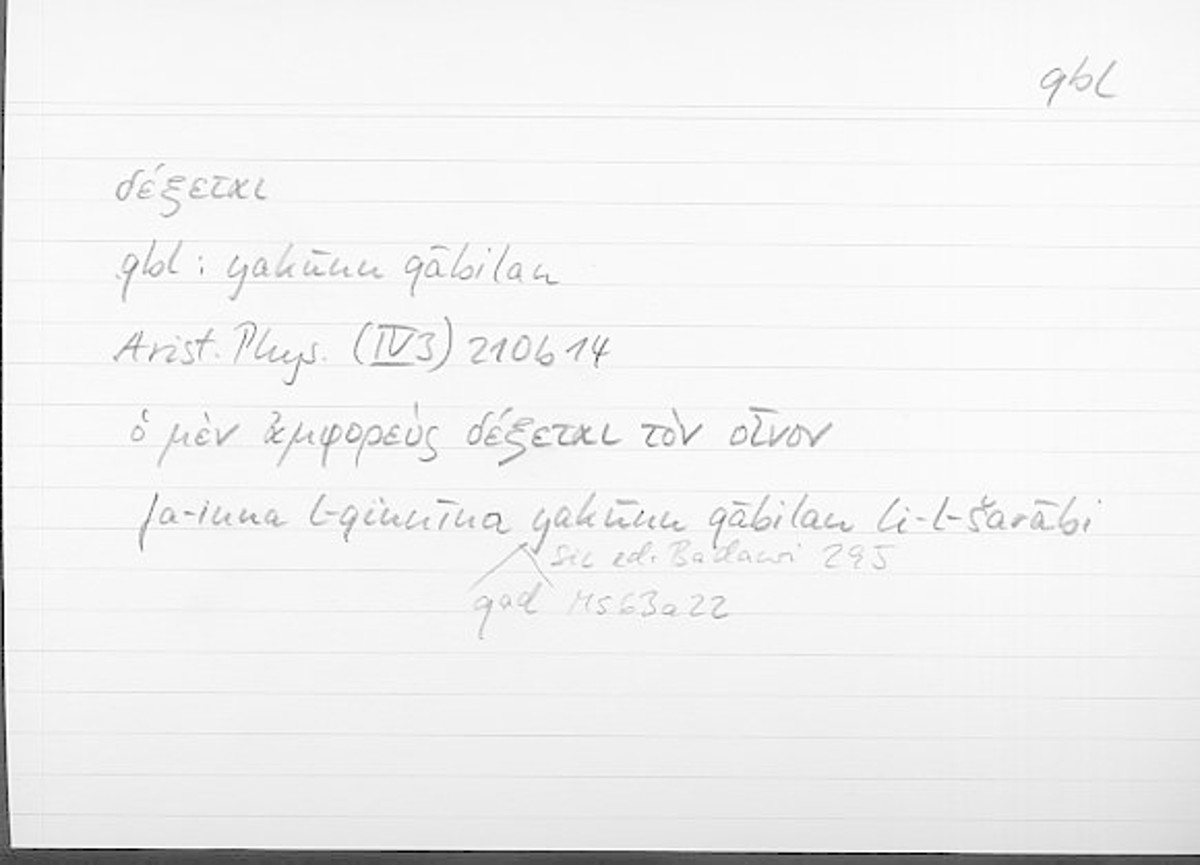 qbl
δέξεται
qbl : yakūnu qābilan
Arist. Phys. (IV3) 210b14
ὁ μὲν ἀμφορεὺς δέξεται τὸν οἶνον
fa-inna l-qinnīna yakūnu qābilan li-l-šarābi
sic ed. Badawi 295
qad MS63a22